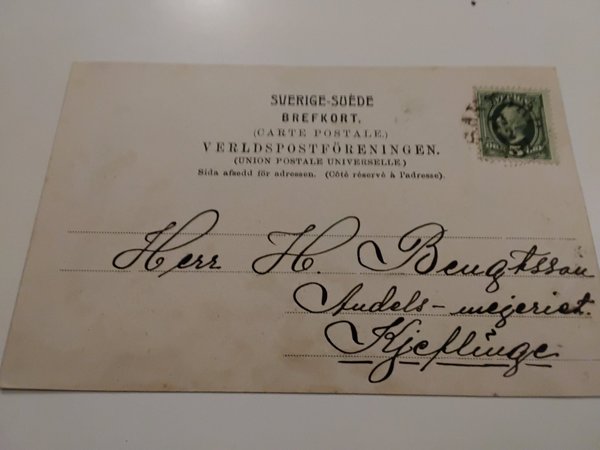 SVERIGE-SUÈDE
BREFKORT.
(CARTE POSTALE.)
VERLDSPOSTFÖRENINGEN.
(UNION POSTALE UNIVERSELLE.)
Sida afsedd för adressen. (Côté réservé à l'adresse).
5
Herr H. Bengtsson
Andels-mejeriet.
Kjeflinge